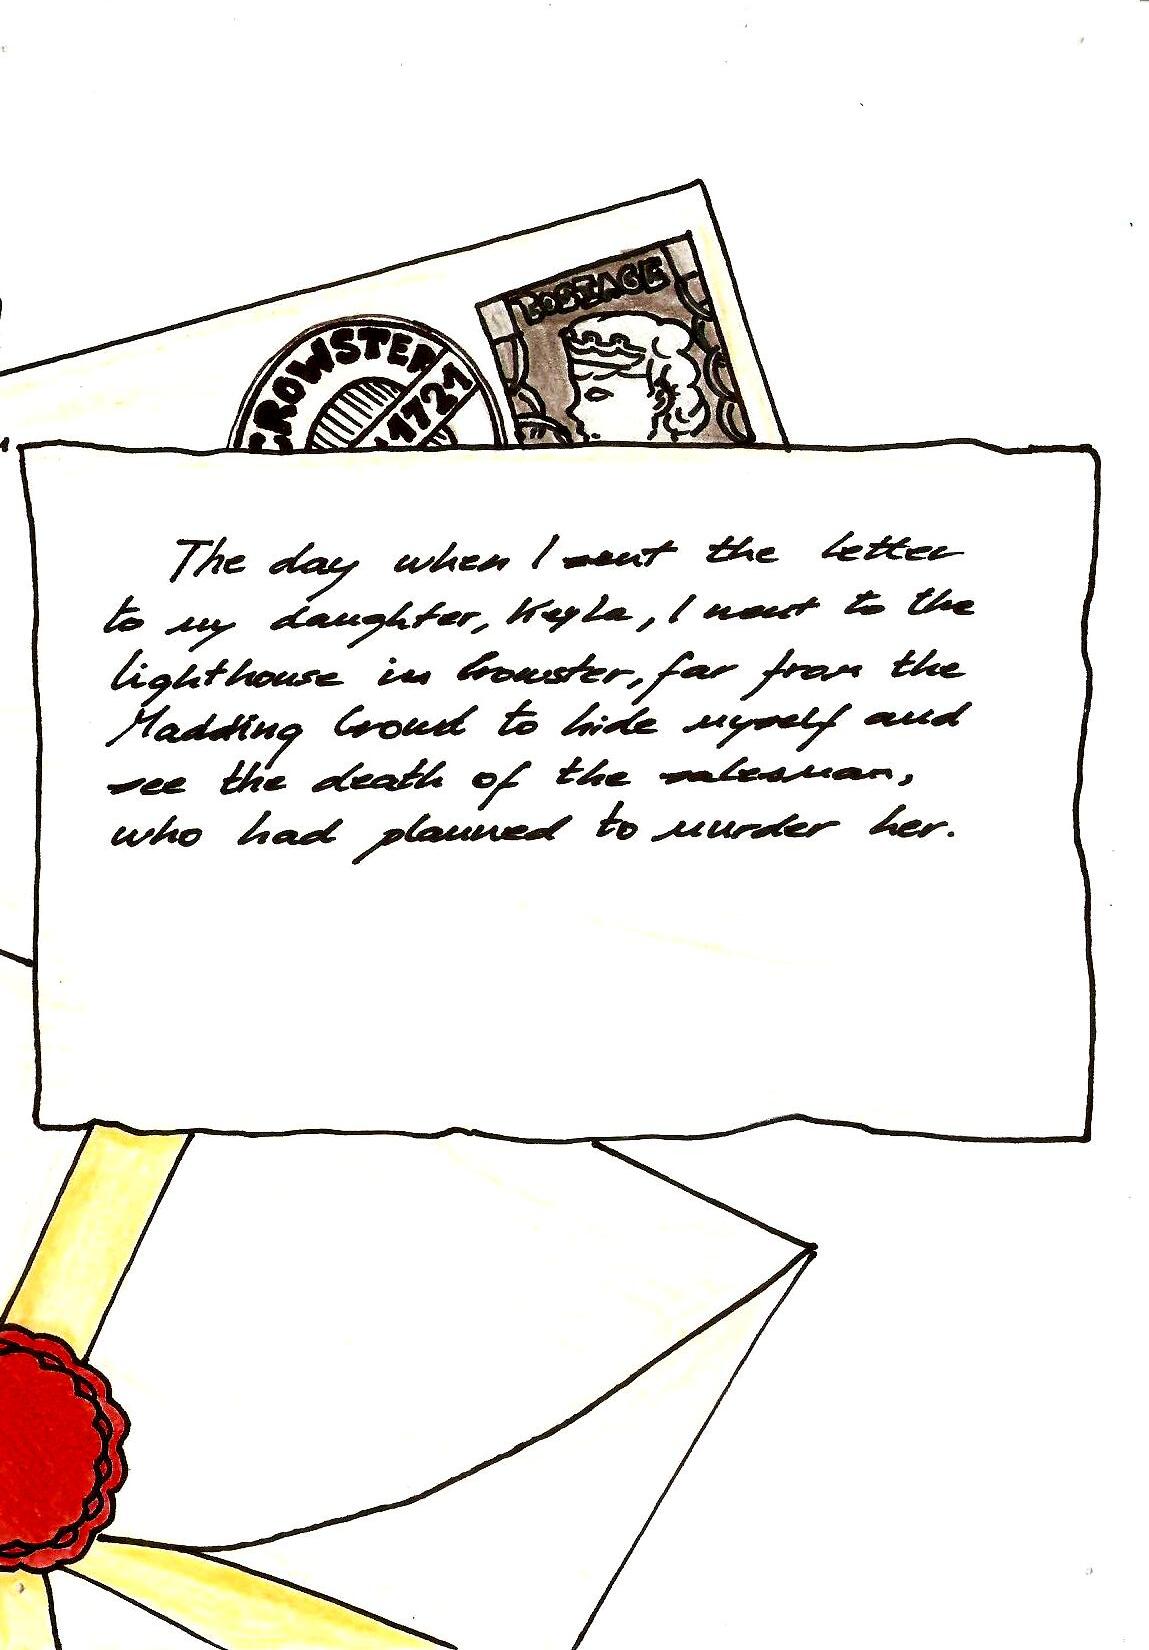 POSTAGE
CROWSTER
1721
The day when I sent the letter
to my daughter, Keyla, I went to the
lighthouse in Crowster, far from the
Madding Crowd to hide myself and
see the death of the salesman,
who had planned to murder her.